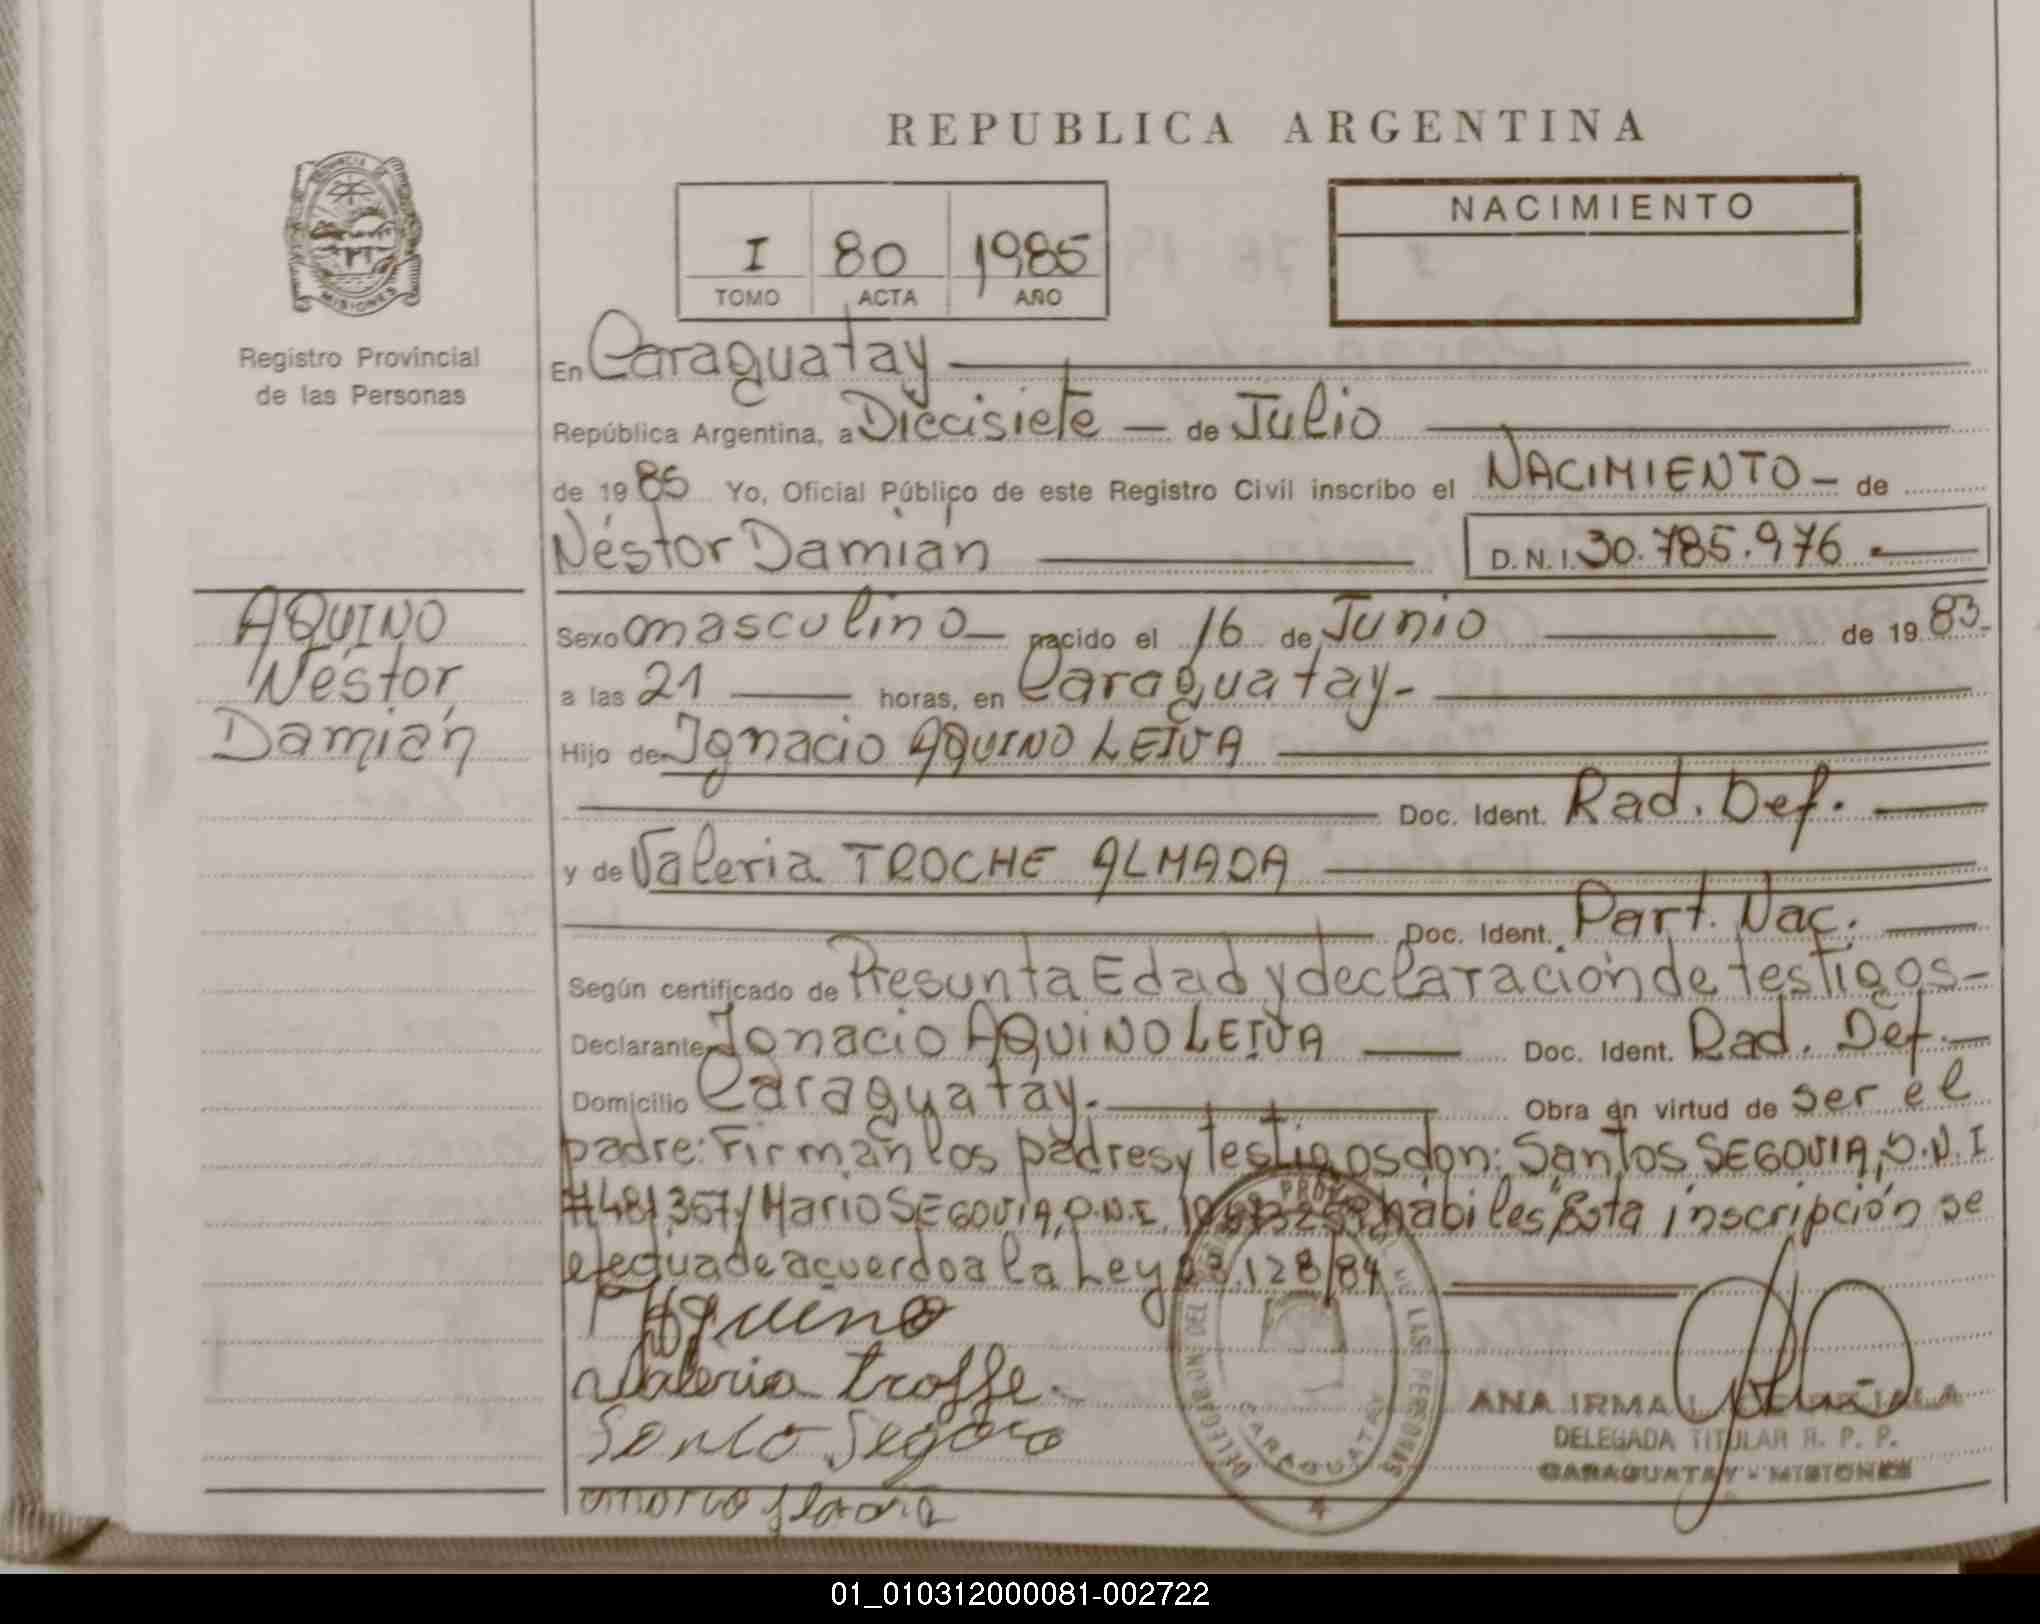 REPUBLICA ARGENTINA
PROVINCIA DE
MISIONES
Registro Provincial
de las Personas
I 80 1985
TOMO ACTA AÑO
NACIMIENTO
En Caraguatay
República Argentina, a Diecisiete — de Julio
de 1985 Yo, Oficial Público de este Registro Civil inscribo el NACIMIENTO — de
Néstor Damián D.N.I. 30.785.976.
AQUINO
Néstor
Damián
Sexo masculino — nacido el 16 de Junio de 1983.
a las 21 horas, en Caraguatay-
Hijo de Ignacio AQUINO LEIVA
Doc. Ident. Rad. Def.
y de Valeria TROCHE ALMADA
Doc. Ident. Part. Nac.
Según certificado de Presunta Edad y declaración de testigos-
Declarante Ignacio AQUINO LEIVA Doc. Ident. Rad. Def.
Domicilio Caraguatay. Obra en virtud de ser el
padre: Firman los padres y testigos don: Santos SEGOVIA, D.N.I
Mario SEGOVIA, D.N.I. hábiles Esta inscripción se
efectua de acuerdo a la Ley 23.128/84
Aquino
Valeria troffe.
DELEGACION DEL REGISTRO PROVINCIAL DE LAS PERSONAS
CARAGUATAY
ANA IRMA
DELEGADA TITULAR R. P. P.
CARAGUATAY - MISIONES
01_010312000081-002722